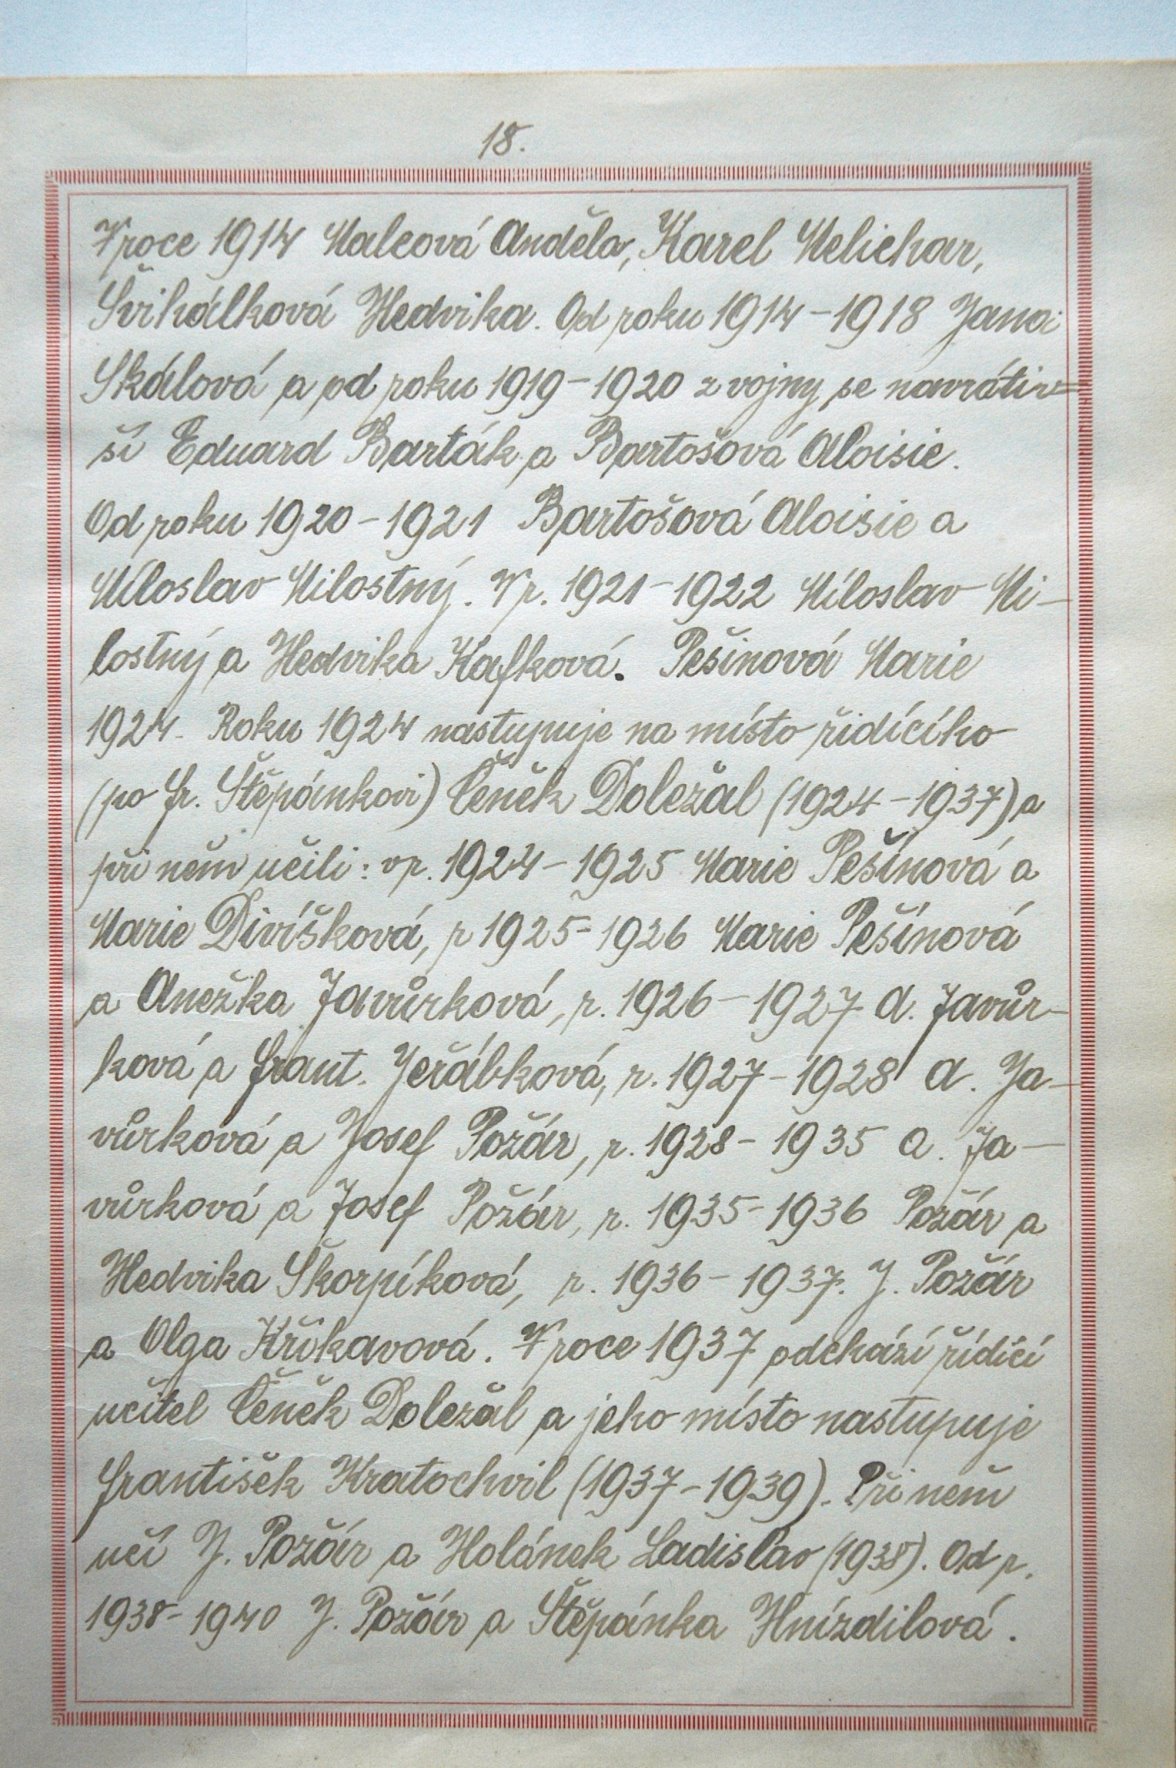 18.
V roce 1914 Malcová Anděla, Karel Melichar,
Švihálková Hedvika. Od roku 1914-1918 Jana
Skálová a od roku 1919-1920 z vojny se navrátiv=
ší Eduard Barták a Bartošová Aloisie.
Od roku 1920-1921 Bartošová Aloisie a
Miloslav Milostný. V r. 1921-1922 Miloslav Mi-
lostný a Hedvika Kafková. Pešinová Marie
1924. Roku 1924 nastupuje na místo řidícího
(po Fr. Štěpánkovi) Čeněk Doležal (1924-1937) a
při něm učili: v r. 1924-1925 Marie Pešínová a
Marie Divíšková, r 1925-1926 Marie Pešínová
a Anežka Javůrková, r. 1926-1927 A. Javůr-
ková a Frant. Jeřábková, r. 1927-1928 A. Ja-
vůrková a Josef Požár, r. 1928-1935 A. Ja-
vůrková a Josef Požár, r. 1935-1936 Požár a
Hedvika Škorpíková, r. 1936-1937. J. Požár
a Olga Křikavová. V roce 1937 odchází řídící
učitel Čeněk Doležal a jeho místo nastupuje
František Kratochvil (1937-1939). Při něm
učí J. Požár a Holánek Ladislav (1938). Od r.
1938-1940 J. Požár a Štěpánka Hnízdilová.